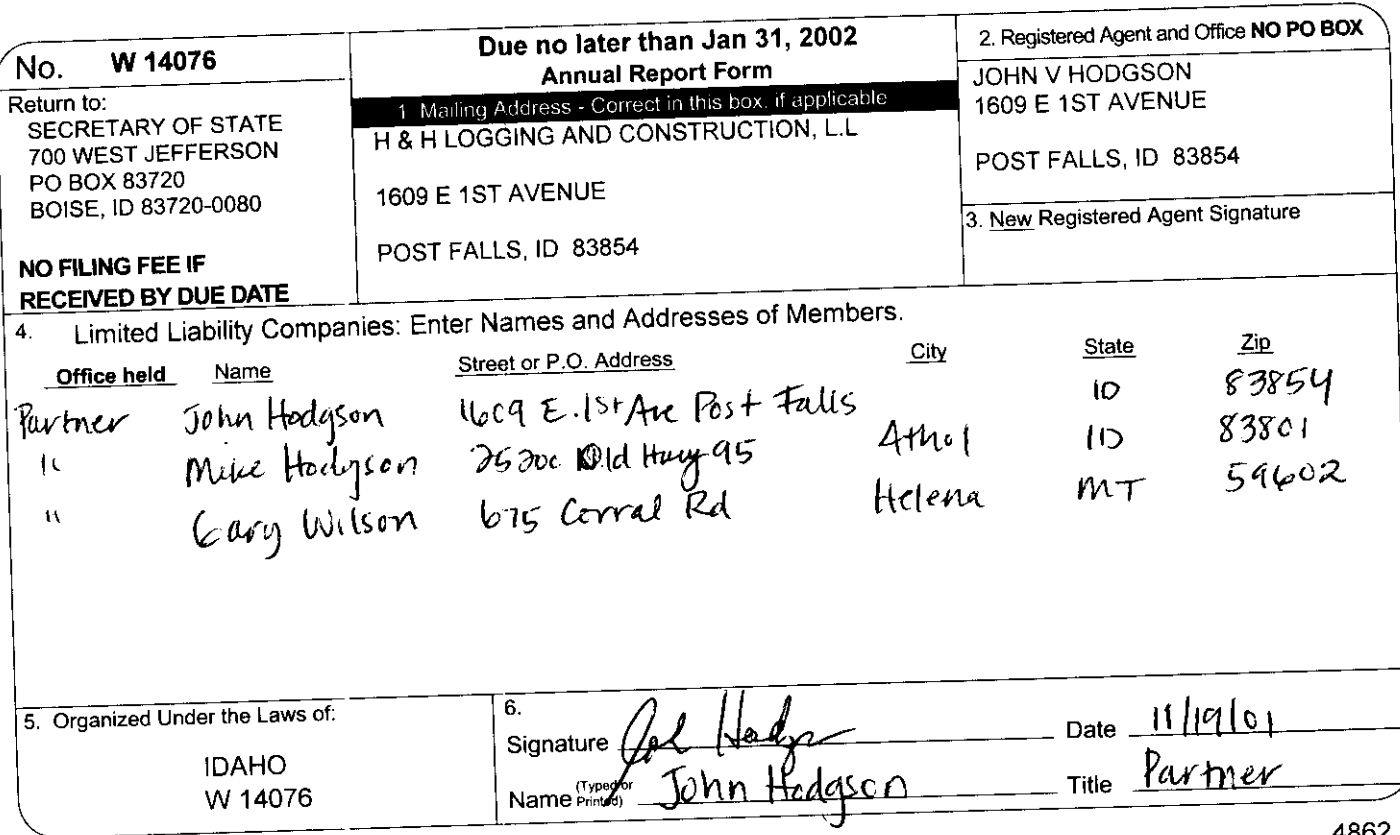 No. W 14076
Return to:
SECRETARY OF STATE
700 WEST JEFFERSON
PO BOX 83720
BOISE, ID 83720-0080
NO FILING FEE IF
RECEIVED BY DUE DATE
Due no later than Jan 31, 2002
Annual Report Form
1 Mailing Address - Correct in this box, if applicable
H & H LOGGING AND CONSTRUCTION, L.L
1609 E 1ST AVENUE
POST FALLS, ID 83854
2. Registered Agent and Office NO PO BOX
JOHN V HODGSON
1609 E 1ST AVENUE
POST FALLS, ID 83854
3. New Registered Agent Signature
4. Limited Liability Companies: Enter Names and Addresses of Members.
Office held Name Street or P.O. Address City State Zip
Partner John Hodgson 1609 E. 1st Ave Post Falls ID 83854
" Mike Hodgson 25200 Old Hwy 95 Athol ID 83801
" Gary Wilson 675 Corral Rd Helena MT 59602
5. Organized Under the Laws of:
IDAHO
W 14076
6.
Signature John Hodgson Date 11/19/01
Name (Typed or Printed) John Hodgson Title Partner
4862